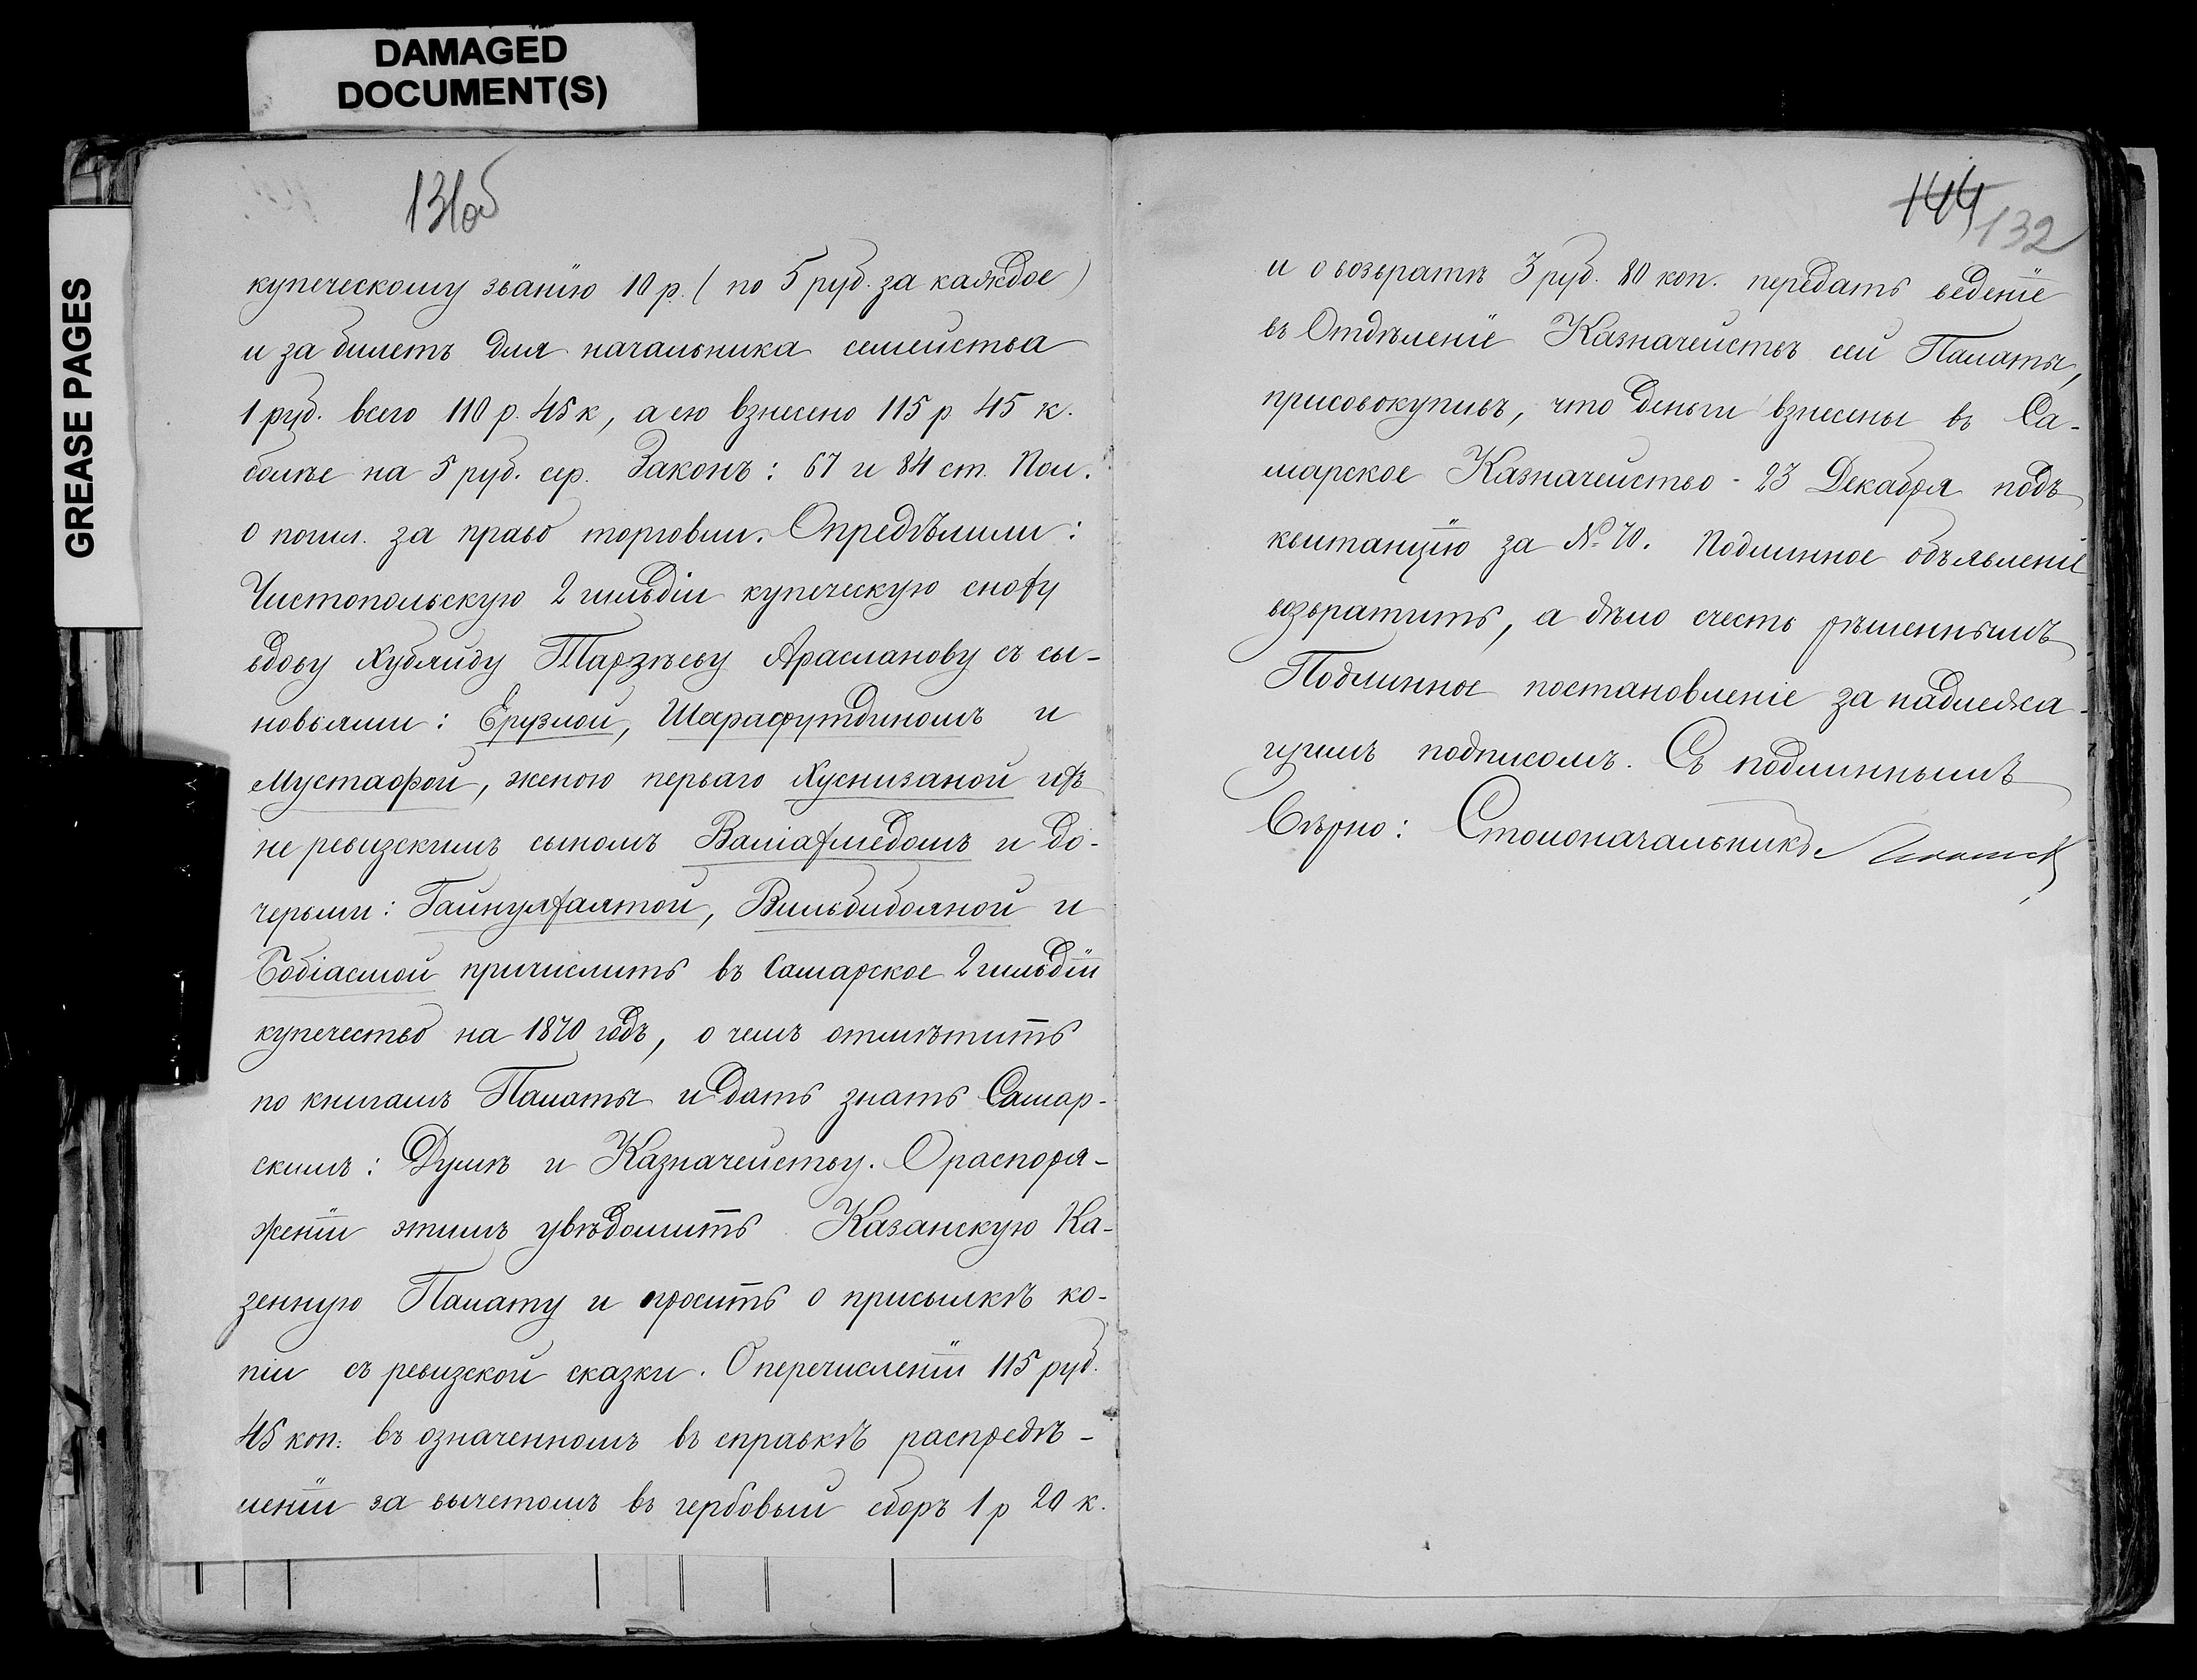 DAMAGED
DOCUMENT(S)
GREASE PAGES
131об
купеческому званію 10 р. ( по 5 руб. за каждое)
и за билетъ для начальника семейства
1 руб. всего 110 р. 45 к, а ею взнесено 115 р 45 к.
болѣе на 5 руб. сер. Законъ: 67 и 84 ст. Пол.
о пошл. за право торговли. Опредѣлили:
Чистопольскую 2 гильдіи купеческую сноху
вдову Хубяиду Тарзѣеву Арасланову съ сы-
новьями: Ерузлой, Шарафутдиномъ и
Мустафой, женою перваго Хуснизаной ихъ
не ревизскимъ сыномъ Валіахмедомъ и до-
черьми: Гайнулхаятой, Вильбибояной и
Бобіасмой причислить въ Самарское 2 гильдіи
купечество на 1870 годъ, о чемъ отмѣтить
по книгамъ Палаты и дать знать Самар-
скимъ: Думѣ и Казначейству. О распоря-
женіи этимъ увѣдомить Казанскую Ка-
зенную Палату и просить о присылкѣ ко-
піи съ ревизской сказки. О перечисленіи 115 руб.
45 коп. въ означенномъ въ справкѣ распредѣ-
леніи за вычетомъ въ гербовый сборъ 1 р 20 к.
144
132
и о возвратѣ 3 руб. 80 коп. передать веденіе
въ Отдѣленіе Казначействъ сей Палаты,
присовокупивъ, что деньги взнесены въ Са-
марское Казначейство - 23 Декабря подъ
квитанцію за № 70. Подлинное объявленіе
возвратить, а дѣло счесть рѣшеннымъ
Подлинное постановленіе за надлежа-
щимъ подписомъ. Съ подлиннымъ
Вѣрно: Столоначальникъ